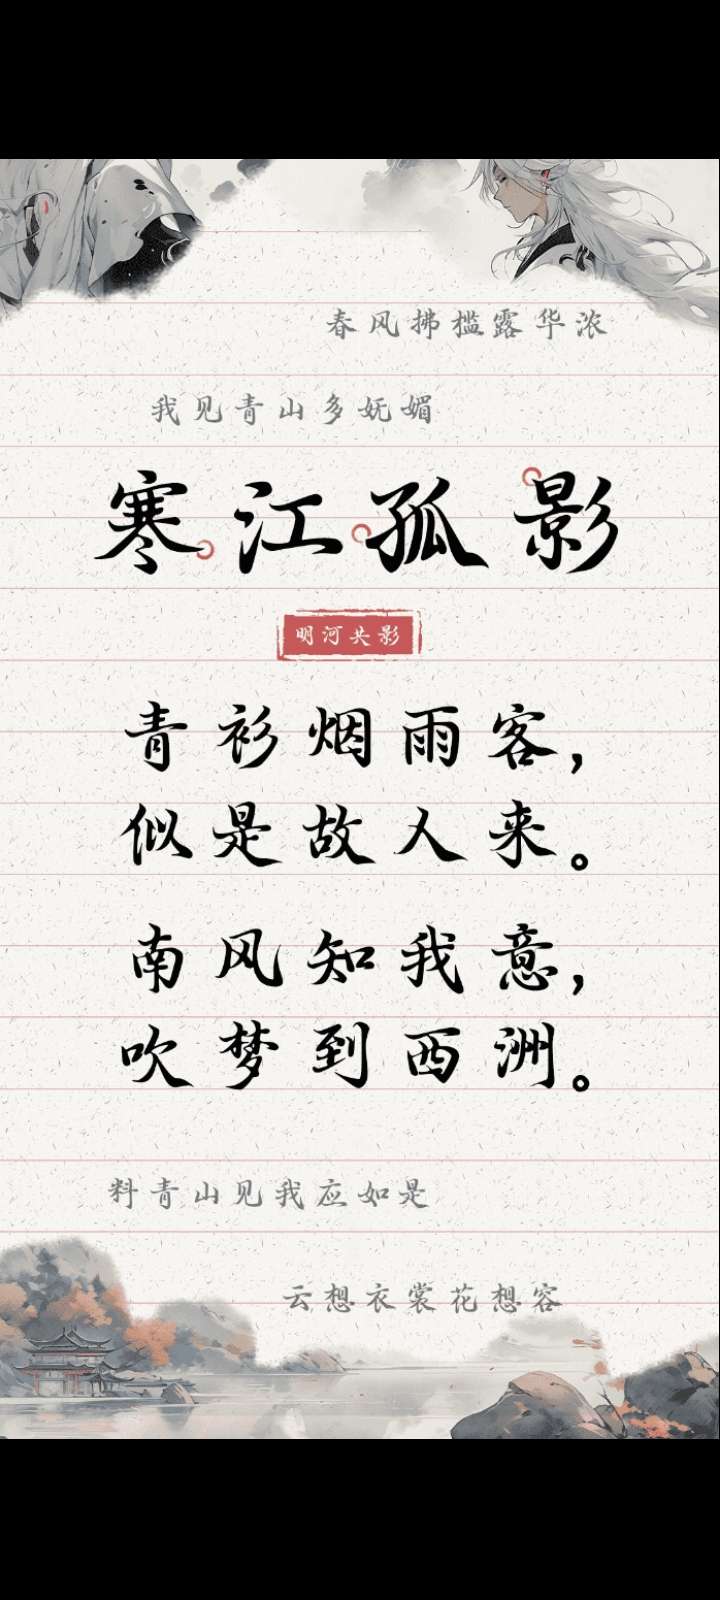 春风拂槛露华浓
我见青山多妩媚
寒江孤影
明河共影
青衫烟雨客，
似是故人来。
南风知我意，
吹梦到西洲。
料青山见我应如是
云想衣裳花想容